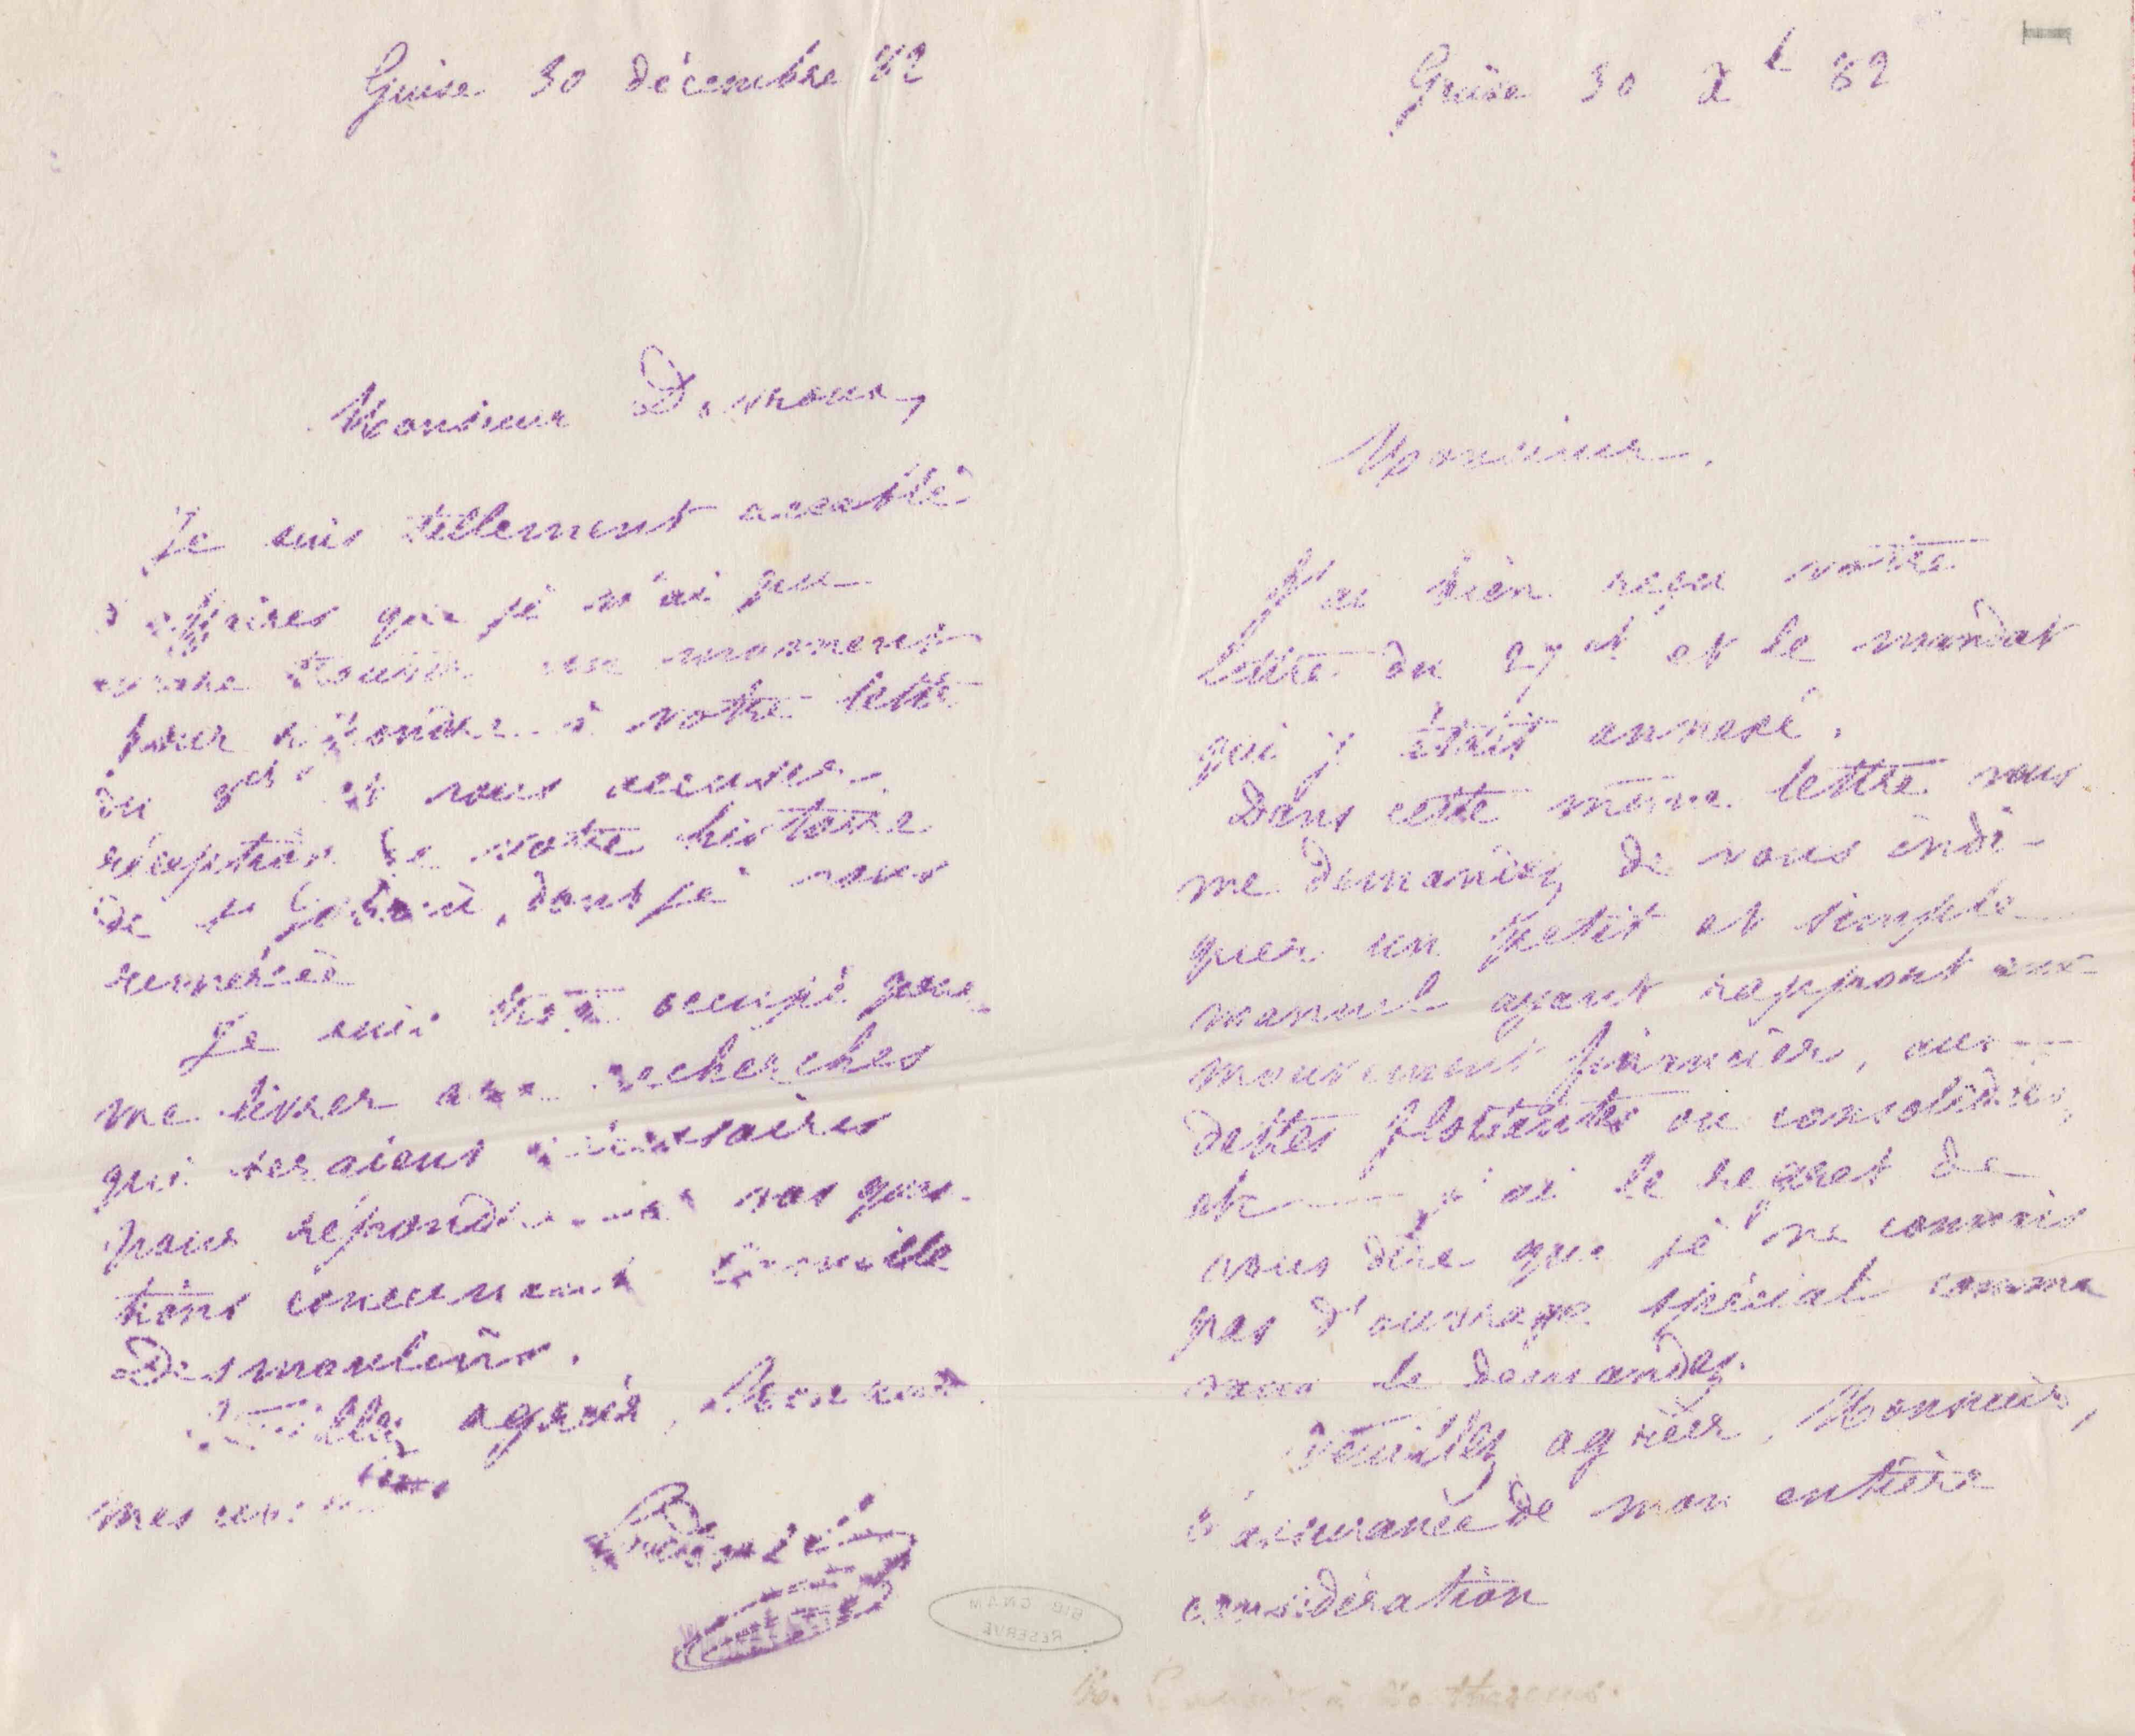 Guise 30 décembre 82
Monsieur
Je suis tellement accablé
d'affaires que je n'ai pu
trouver un moment
pour répondre à votre lettre
du et vous accuser
réception de votre histoire
de dont je vous
remercie
Je suis trop occupé pour
me livrer aux recherches
qui seraient nécessaires
pour répondre à vos ques-
tions concernant Camille
Desmoulins.
Veuillez agréer, Monsieur
mes
Godin
Guise 30 Xb 82
Monsieur,
J'ai bien reçu votre
lettre du 27 ct et le mandat
qui y était annexé.
Dans cette même lettre vous
me demandez de vous indi-
quer un petit et simple
manuel ayant rapport au
mouvement financier, aux
dettes flottantes ou consolidées,
etc j'ai le regret de
vous dire que je ne connais
pas d'ouvrage spécial comme
vous le demandez.
Veuillez agréer, Monsieur,
l'assurance de mon entière
considération
BIB CNAM
RESERVE